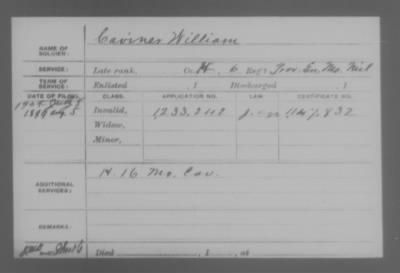 Caviner William
NAME OF SOLDIER:
SERVICE: Late rank, Co. H, 6 Reg't Prov. En. Mo. Mil
TERM OF SERVICE: Enlisted , 1 Discharged , 1
DATE OF FILING. CLASS. APPLICATION NO. LAW. CERTIFICATE NO.
5 Invalid, 1,233,248 1147,832
Widow,
Minor,
ADDITIONAL SERVICES: H. 16 Mo. Cav.
REMARKS:
Died , 1 , at